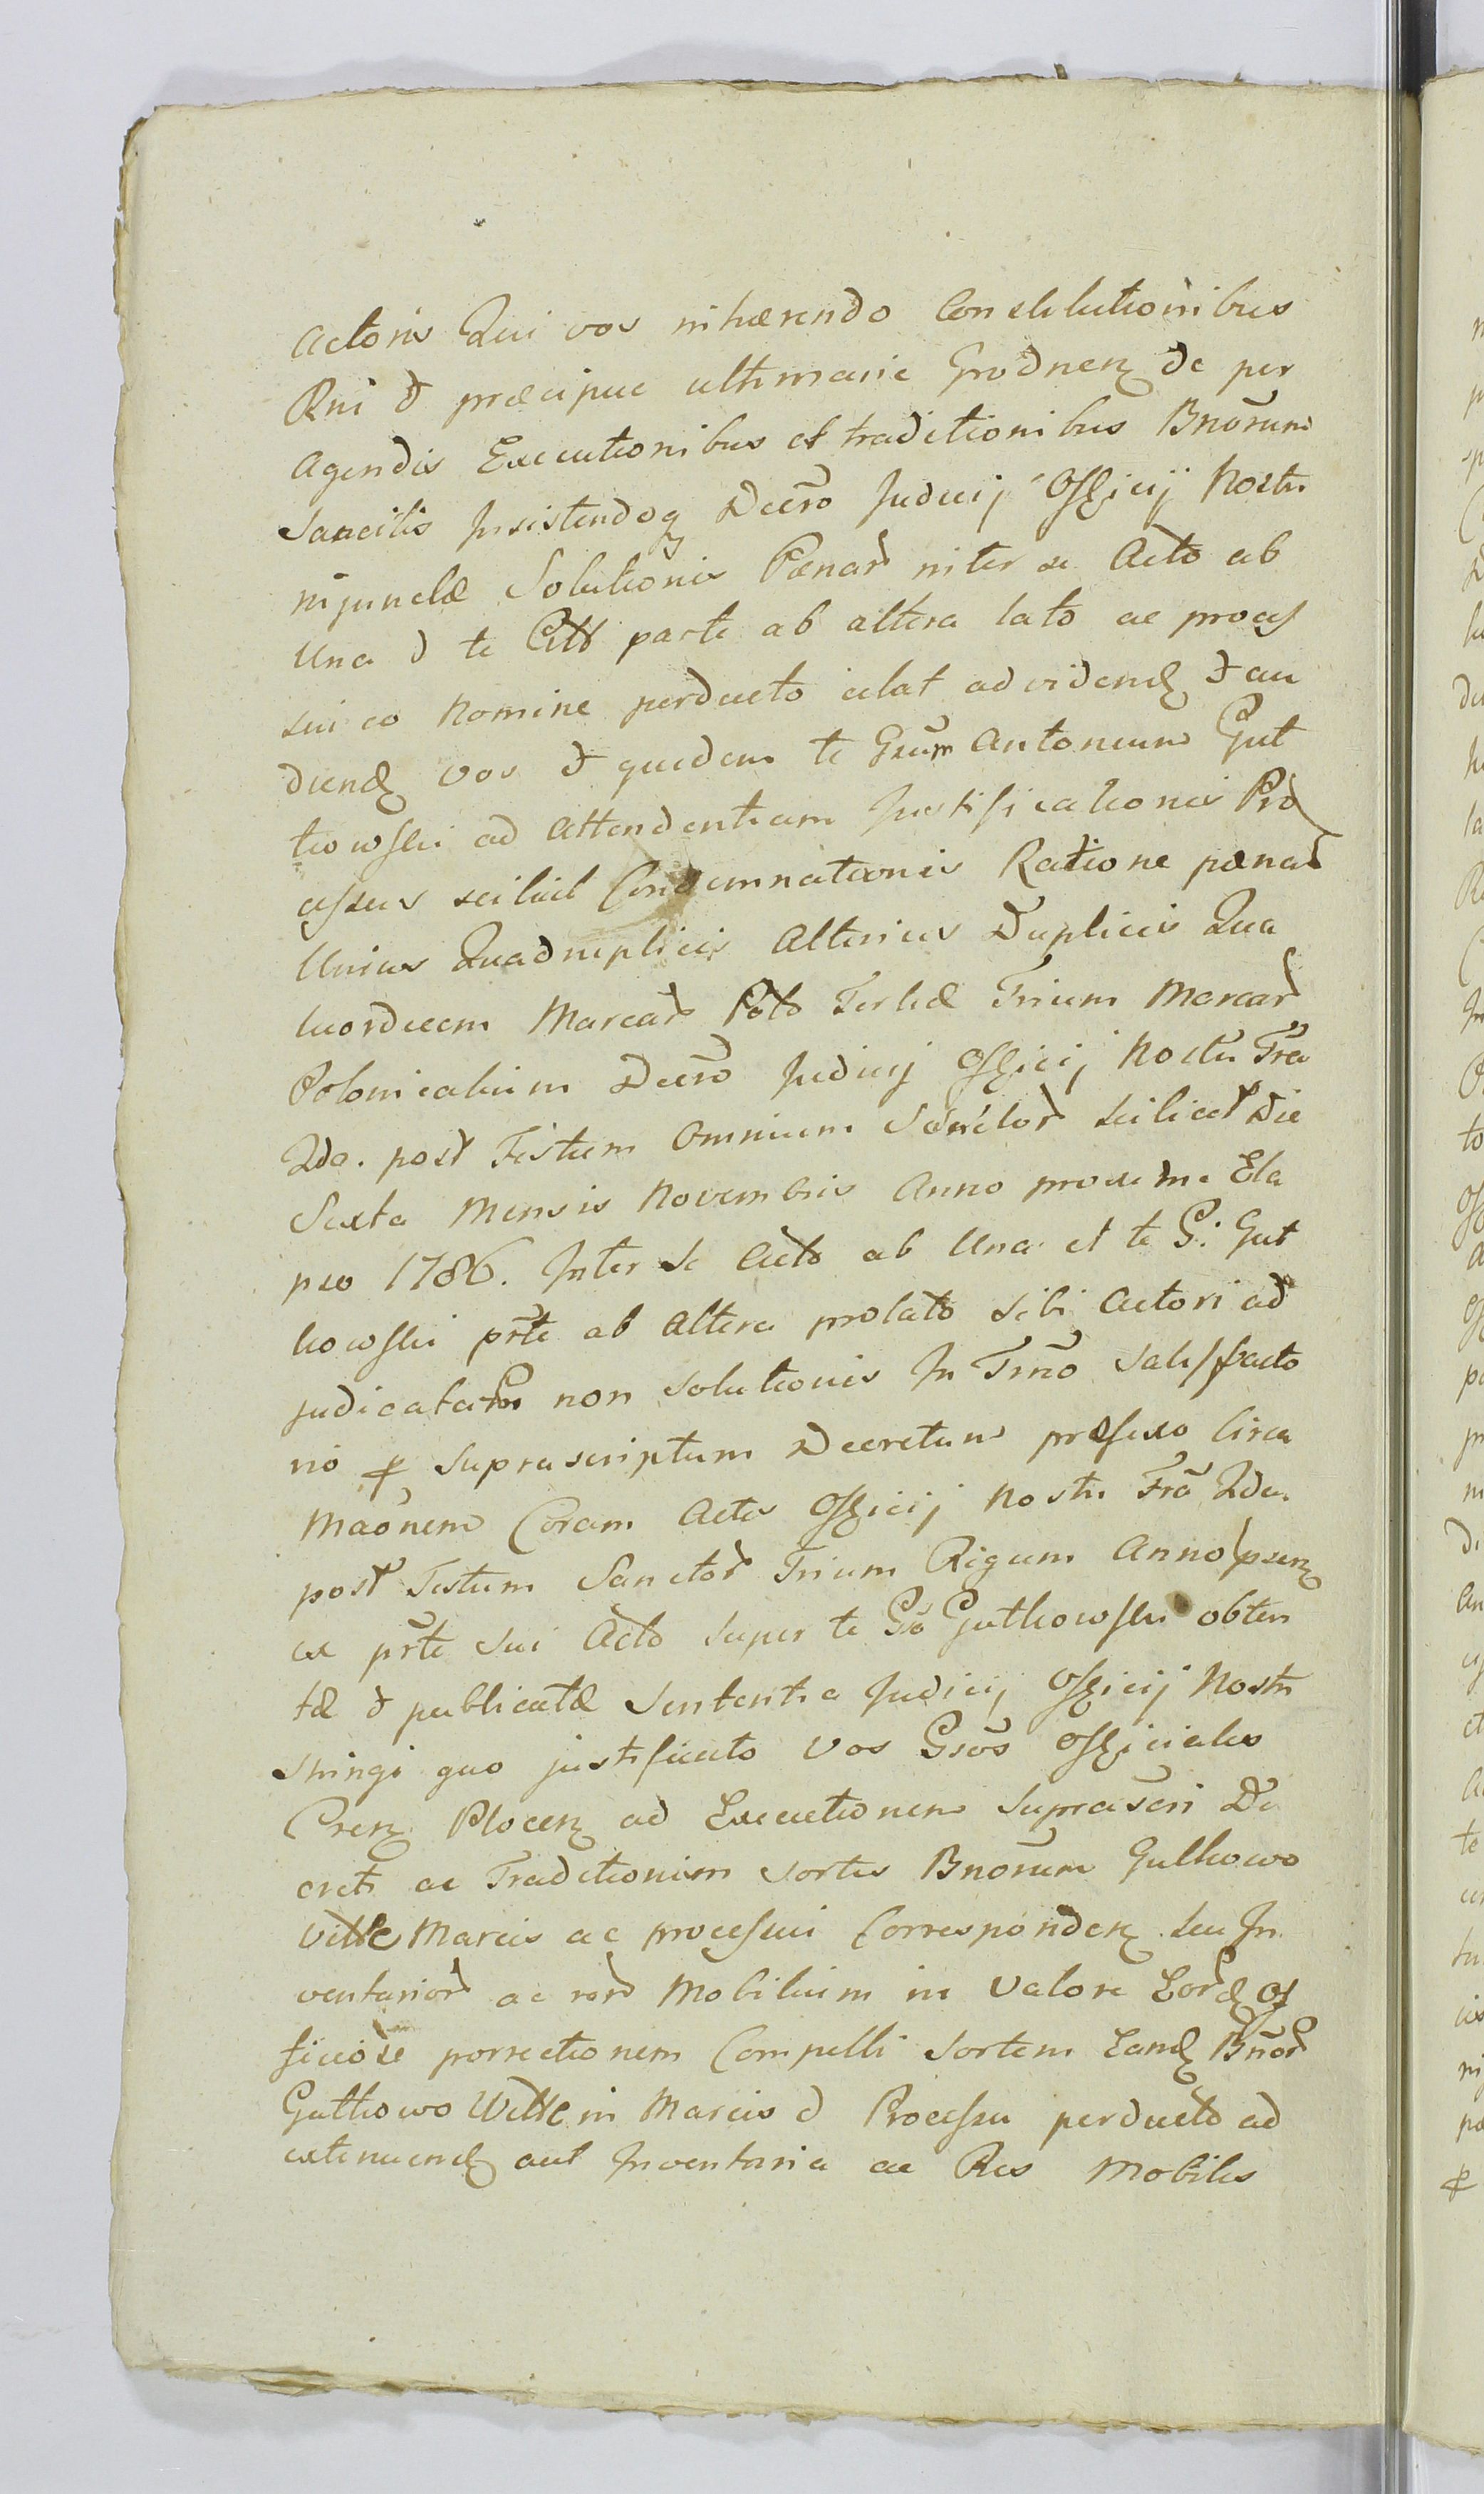 Actoris Qui vos inhærendo Constitutionibus
Rni & præcipue ultimarie Grodnen de per
Agendis Executionibus et traditionibus Bnorum
Sancitis Insistendoq Decro Judicij Officij Nostri
injunctæ Solutionis Pænar inter se Acto ab
Una & te Citt parte ab altera lato ac proces
sui eo Nomine perducto citat ad videnđ & au
dienđ vos & quidem te Grum Antonium Gut
kowski ad Attendentiam Justificationis Pro
cessus scilicet Condemnationis Ratione pænar
Unius Quadruplicis Alterius Duplicis Qua
tuordecem Marcar Polo Tertiæ Trium Marcar
Polonicalium Decro Judicij Officij Nostri Fra
2da. post Festum Omnium Sanctor scilicet Die
Sexta Mensis Novembris Anno proxime Ela
pso 1786. Inter Se Acto ab Una et te G: Gut
kowski prte ab Altera prolato Sibi Actori ad
judicatar non Solutionis In Trno Satisfacto
rio ꝑ Suprascriptum Decretum præfixo Circa
Maonem Coram Actis Officij Nostri Fra 2da.
post Festum Sanctor Trium Regum Anno psen
ex prte Sui Acto Super te Gso Gutkowski obten
tæ & publicatæ Sententia Judicij Officij Nostri
Stringi quo justificato Vos Gsos Officiales
Cren Plocen ad Executionem Suprascri De
creti ac Traditionem Sortis Bnorum Gutkowo
Ville Marcis ac processui Corresponden seu In
ventarior ac rer Mobilium in Valore Eorđ Of
ficiose porrectionem Compelli Sortem Eanđ Bnor
Gutkowo Ville in Marcis & Processu perducto ad
extenuenđ aut Inventaria ac Res Mobiles